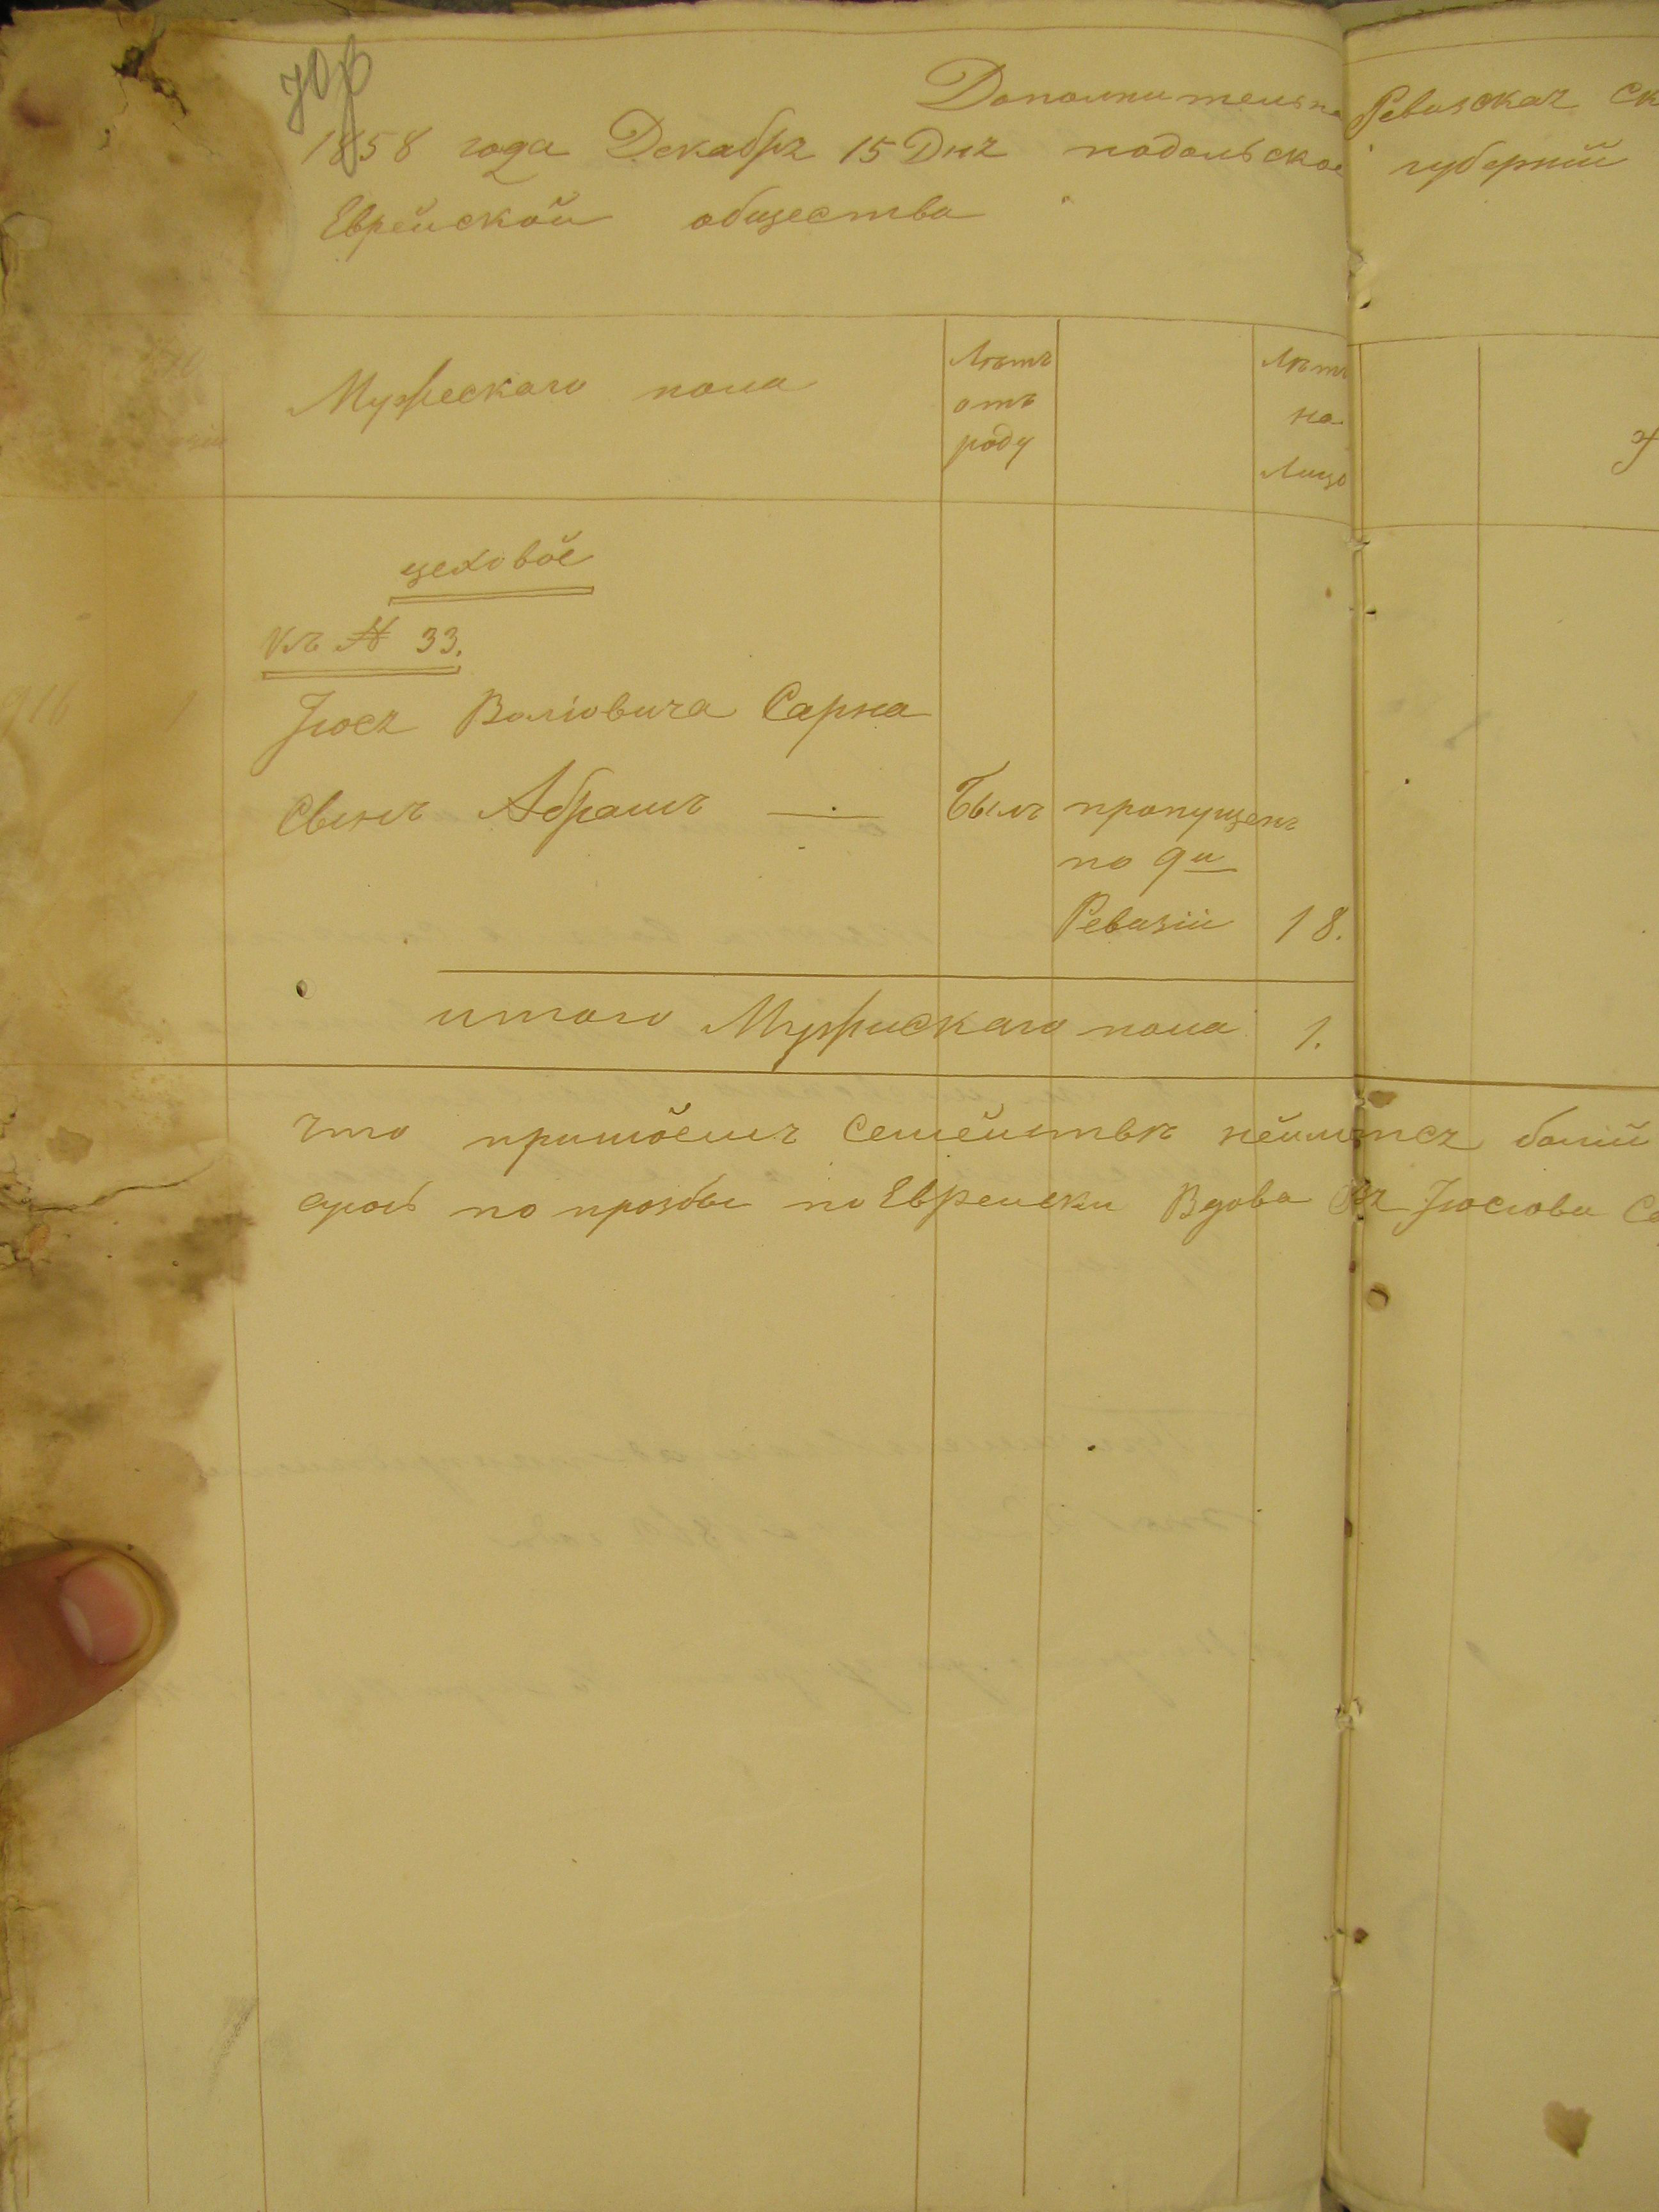 Дополнительна Ревизская Ск
1858 года Декабря 15 Дня подольской губерний
Еврейской общества
Мужескаго пола
Лѣтъ
отъ
роду
Лѣтъ
на
Лицо
цеховое
Къ № 33.
Іюся Валіовича Сарна
Сынъ Абрамъ — Былъ пропущенъ
по 9й
Ревизіи 18.
итого Мужискаго пола 1.
Что семействѣ неиметса
по прозбы по Евреиски Вдова Іюсіова